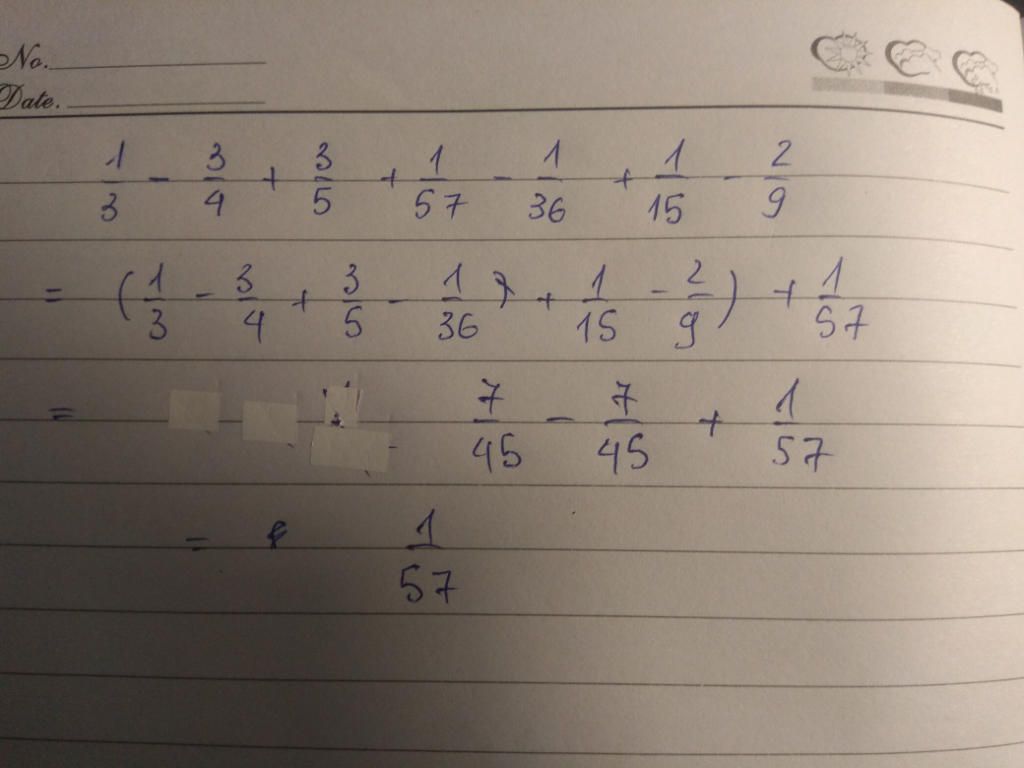 No.
Date.
1/3 - 3/4 + 3/5 + 1/57 - 1/36 + 1/15 - 2/9
= (1/3 - 3/4 + 3/5 - 1/36 + 1/15 - 2/9) + 1/57
= 7/45 - 7/45 + 1/57
= 1/57